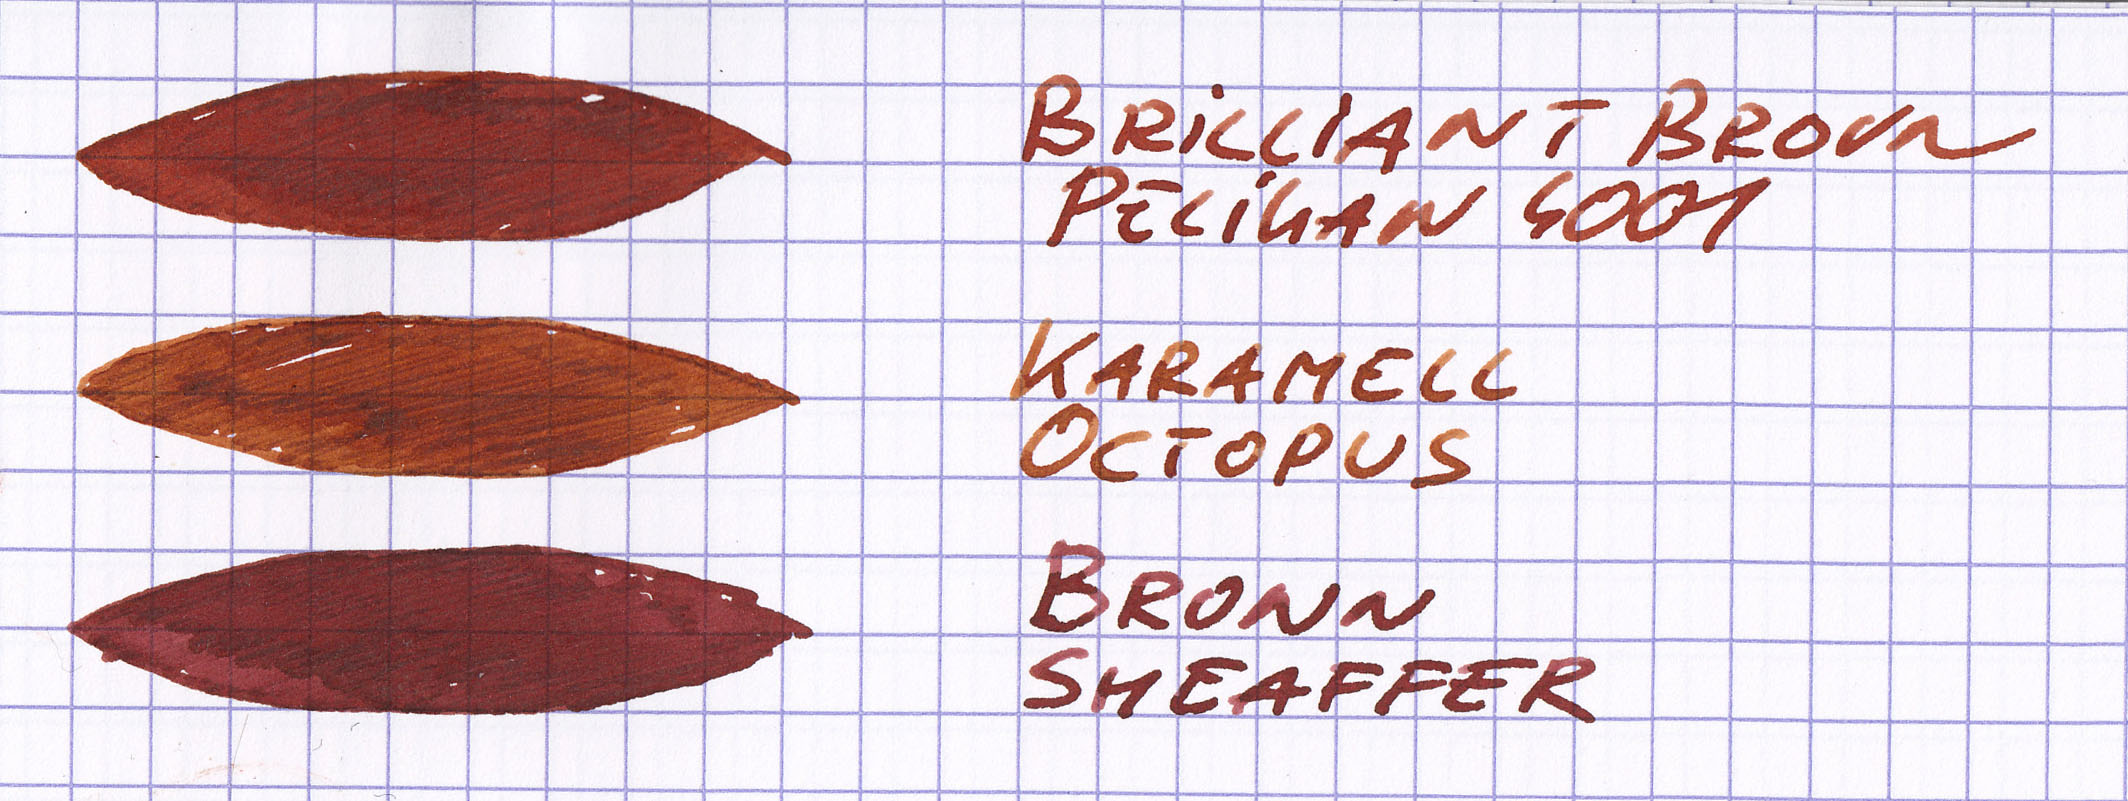 BRILLIANT BROWN
PELIKAN 4001
KARAMELL
OCTOPUS
BROWN
SHEAFFER